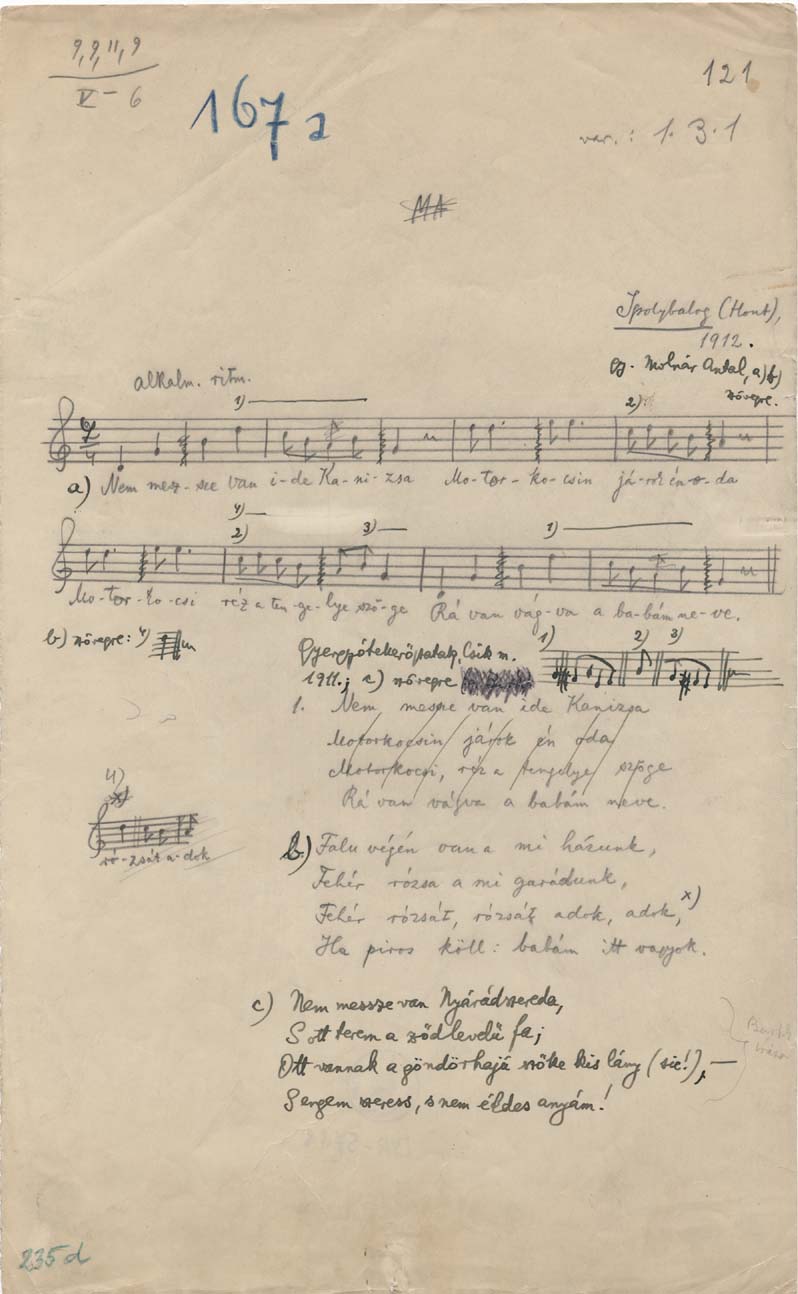 9, 9, 11, 9
V – 6
167 a
121
var.: 1. 3. 1
MA
Ipolybalog (Hont),
1912.
Molnár Antal, a) b)
szövegre.
alkalm. ritm.
1)
2)
a) Nem mesz-sze van i-de Ka-ni-zsa Mo-tor-ko-csin já-rok én o-da
4)
2) 3) 1)
Mo-tor-ko-csi réz a ten-ge-lye szö-ge Rá van vág-va a ba-bám ne-ve.
b) szövegre: 4)
Gyergyótekerőpatak, Csík m.
1911.; c) szövegre
1) 2) 3)
1. Nem messze van ide Kanizsa
Motorkocsin járok én oda
Motorkocsi, réz a tengelye szöge
Rá van vágva a babám neve.
4)
ró-zsát a-dok
b) Falu végén van a mi házunk,
Fehér rózsa a mi garádunk,
Fehér rózsát, rózsát adok, adok, x)
Ha piros köll: babám itt vagyok.
c) Nem messze van Nyárádszereda,
S ott terem a ződlevelű fa;
Ott vannak a göndörhajú szőke kis lány (sic!), —
S engem szeress, s nem édes anyám!
235d